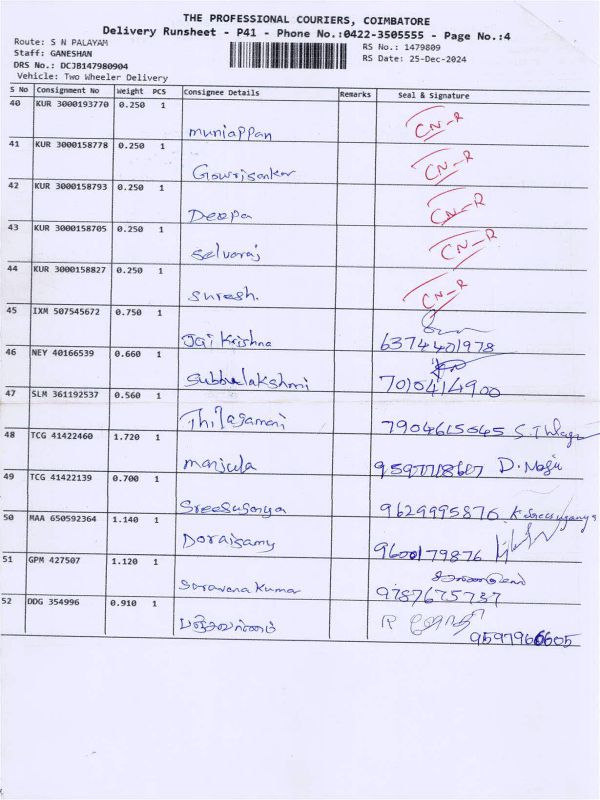 THE PROFESSIONAL COURIERS, COIMBATORE
Delivery Runsheet - P41 - Phone No.:0422-3505555 - Page No.:4
Route: S N PALAYAM
Staff: GANESHAN
DRS No.: DCJB147980904
Vehicle: Two Wheeler Delivery
RS No.: 1479809
RS Date: 25-Dec-2024
S No Consignment No Weight PCS Consignee Details Remarks Seal & Signature
40 KUR 3000193770 0.250 1 muniappan CN-R
41 KUR 3000158778 0.250 1 Gowrisankar CN-R
42 KUR 3000158793 0.250 1 Deepa CN-R
43 KUR 3000158705 0.250 1 selvaraj CN-R
44 KUR 3000158827 0.250 1 suresh. CN-R
45 IXM 507545672 0.750 1 Jai Krishna 6374401978
46 NEY 40166539 0.660 1 Subbulakshmi 7010414900
47 SLM 361192537 0.560 1 Thilagamani 7904615045
48 TCG 41422460 1.720 1 manjula D. Naju
49 TCG 41422139 0.700 1 Sreesuganya 9629995876 K. Sreesuganya
50 MAA 650592364 1.140 1 Doraisamy 9600179876
51 GPM 427507 1.120 1 Saravana Kumar சரவணகுமார் 9787675737
52 DDG 354996 0.910 1 பஞ்சவர்ணம் R ஜோதி 9597966605